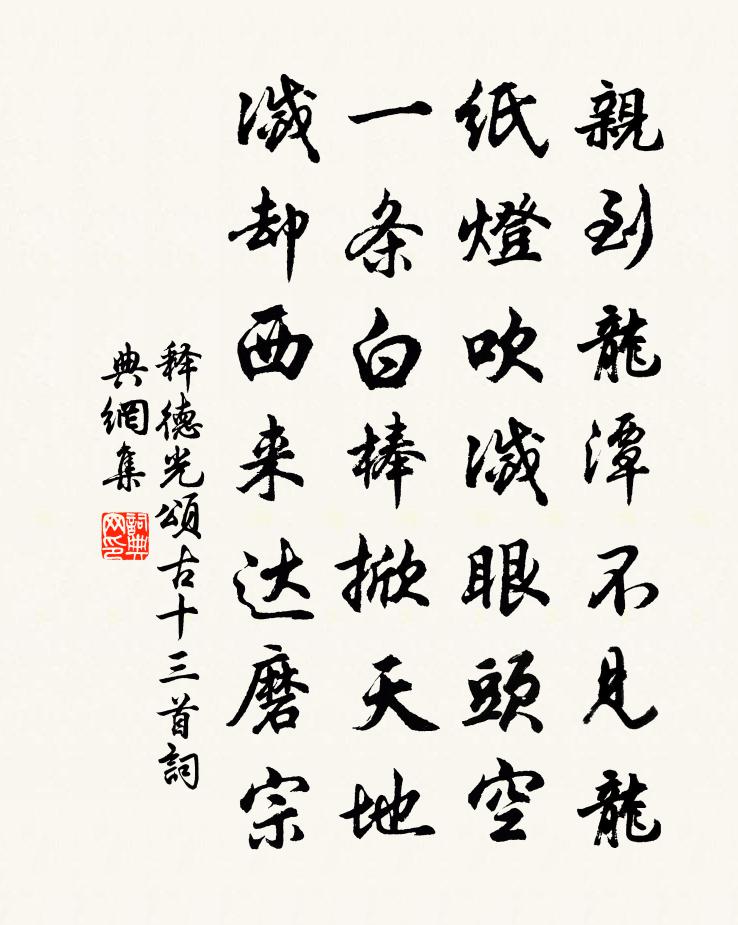 親到龍潭不見龍
紙燈吹滅眼頭空
一条白棒掀天地
滅却西来达磨宗
释德光頌古十三首詞
典網集
詞典
网印